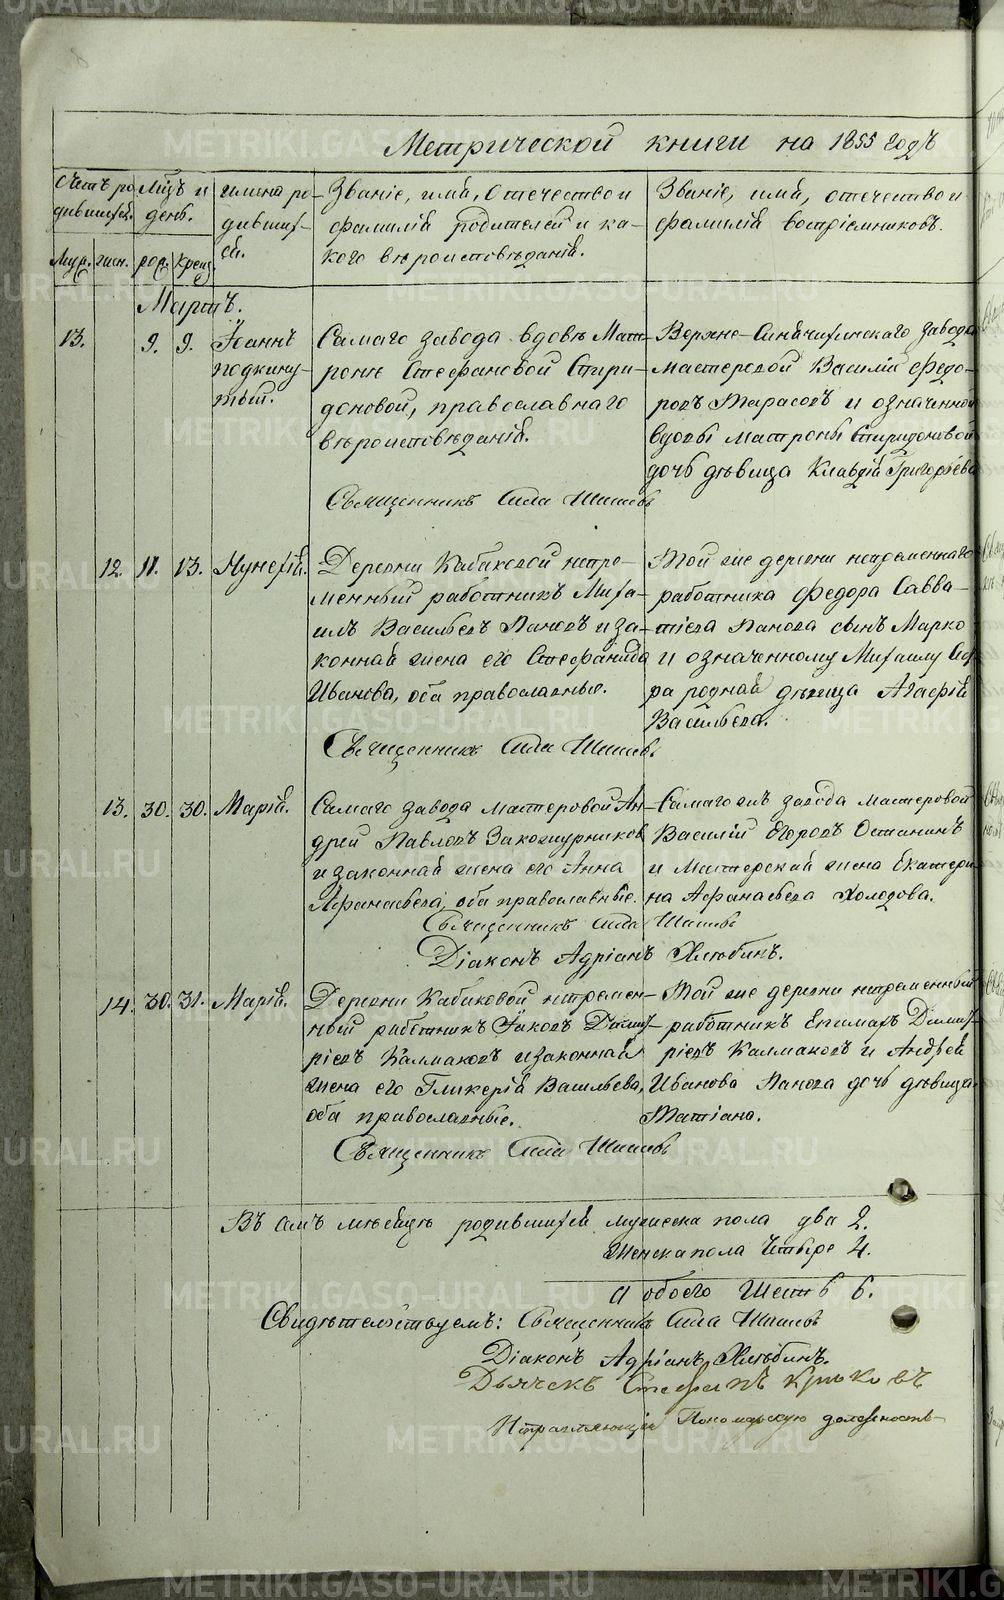 Метрической книги на 1855 годъ
Счетъ ро-
дившихся.
Мѣсяцъ и
день.
имена ро-
дивших-
ся.
Званіе, имя, отечество и
фамилія родителей и ка-
кого вѣроисповѣданія.
Званіе, имя, отечество и
фамилія воспріемниковъ.
Муж. жен. рож. крещ.
Мартъ.
13. 9. 9. Іоаннъ
подкину-
тый.
Самаго завода вдовѣ Мат-
ронѣ Стефановой Спири-
доновой, православнаго
вѣроисповѣданія.
Верхне-Синячихинскаго завода
мастеровой Василій Ѳедо-
ровъ Тарасовъ и означенной
вдовы Матроны Спиридоновой
дочь дѣвица Клавдія Григорьева
Священникъ Сила Шишовъ
12. 11. 13. Нунехія.
Деревни Кабаковой непре-
менный работникъ Миха-
илъ Васильевъ Пановъ и за-
конная жена его Стефанида
Иванова, оба православные.
Той же деревни непременнаго
работника Федора Савва-
тіева Панова сынъ Марко
и означенному Михаилу сест-
ра родная дѣвица Агафія
Васильева.
Священникъ Сила Шишовъ
13. 30. 30. Марія.
Самаго завода мастеровой Ан-
дрей Павловъ Закожурниковъ
и законная жена его Анна
Афанасьева, оба православные.
Самаго жъ завода мастеровой
Василій Егоровъ Останинъ
и Мастерская жена Екатери-
на Афанасьева Холодова.
Священникъ Сила Шишовъ
Діаконъ Адріанъ Хлюбинъ.
14. 30. 31. Марія.
Деревни Кабаковой непремен-
ный работникъ Іаковъ Димит-
ріевъ Калмаковъ и законная
жена его Гликерія Васильева,
оба православные.
Той же деревни непременный
работникъ Епимахъ Димит-
ріевъ Калмаковъ и Андрея
Иванова Панова дочь дѣвица
Татіана.
Священникъ Сила Шишовъ
Въ семъ мѣсяцѣ родившихся мужеска пола два 2.
Женска пола Четыре 4.
А обоего Шесть 6.
Свидѣтельствуемъ: Священникъ Сила Шишовъ
Діаконъ Адріанъ Хлюбинъ.
Дьячекъ Стефанъ Крюковъ
Исправляющій Пономарскую должность
METRIKI.GASO-URAL.RU